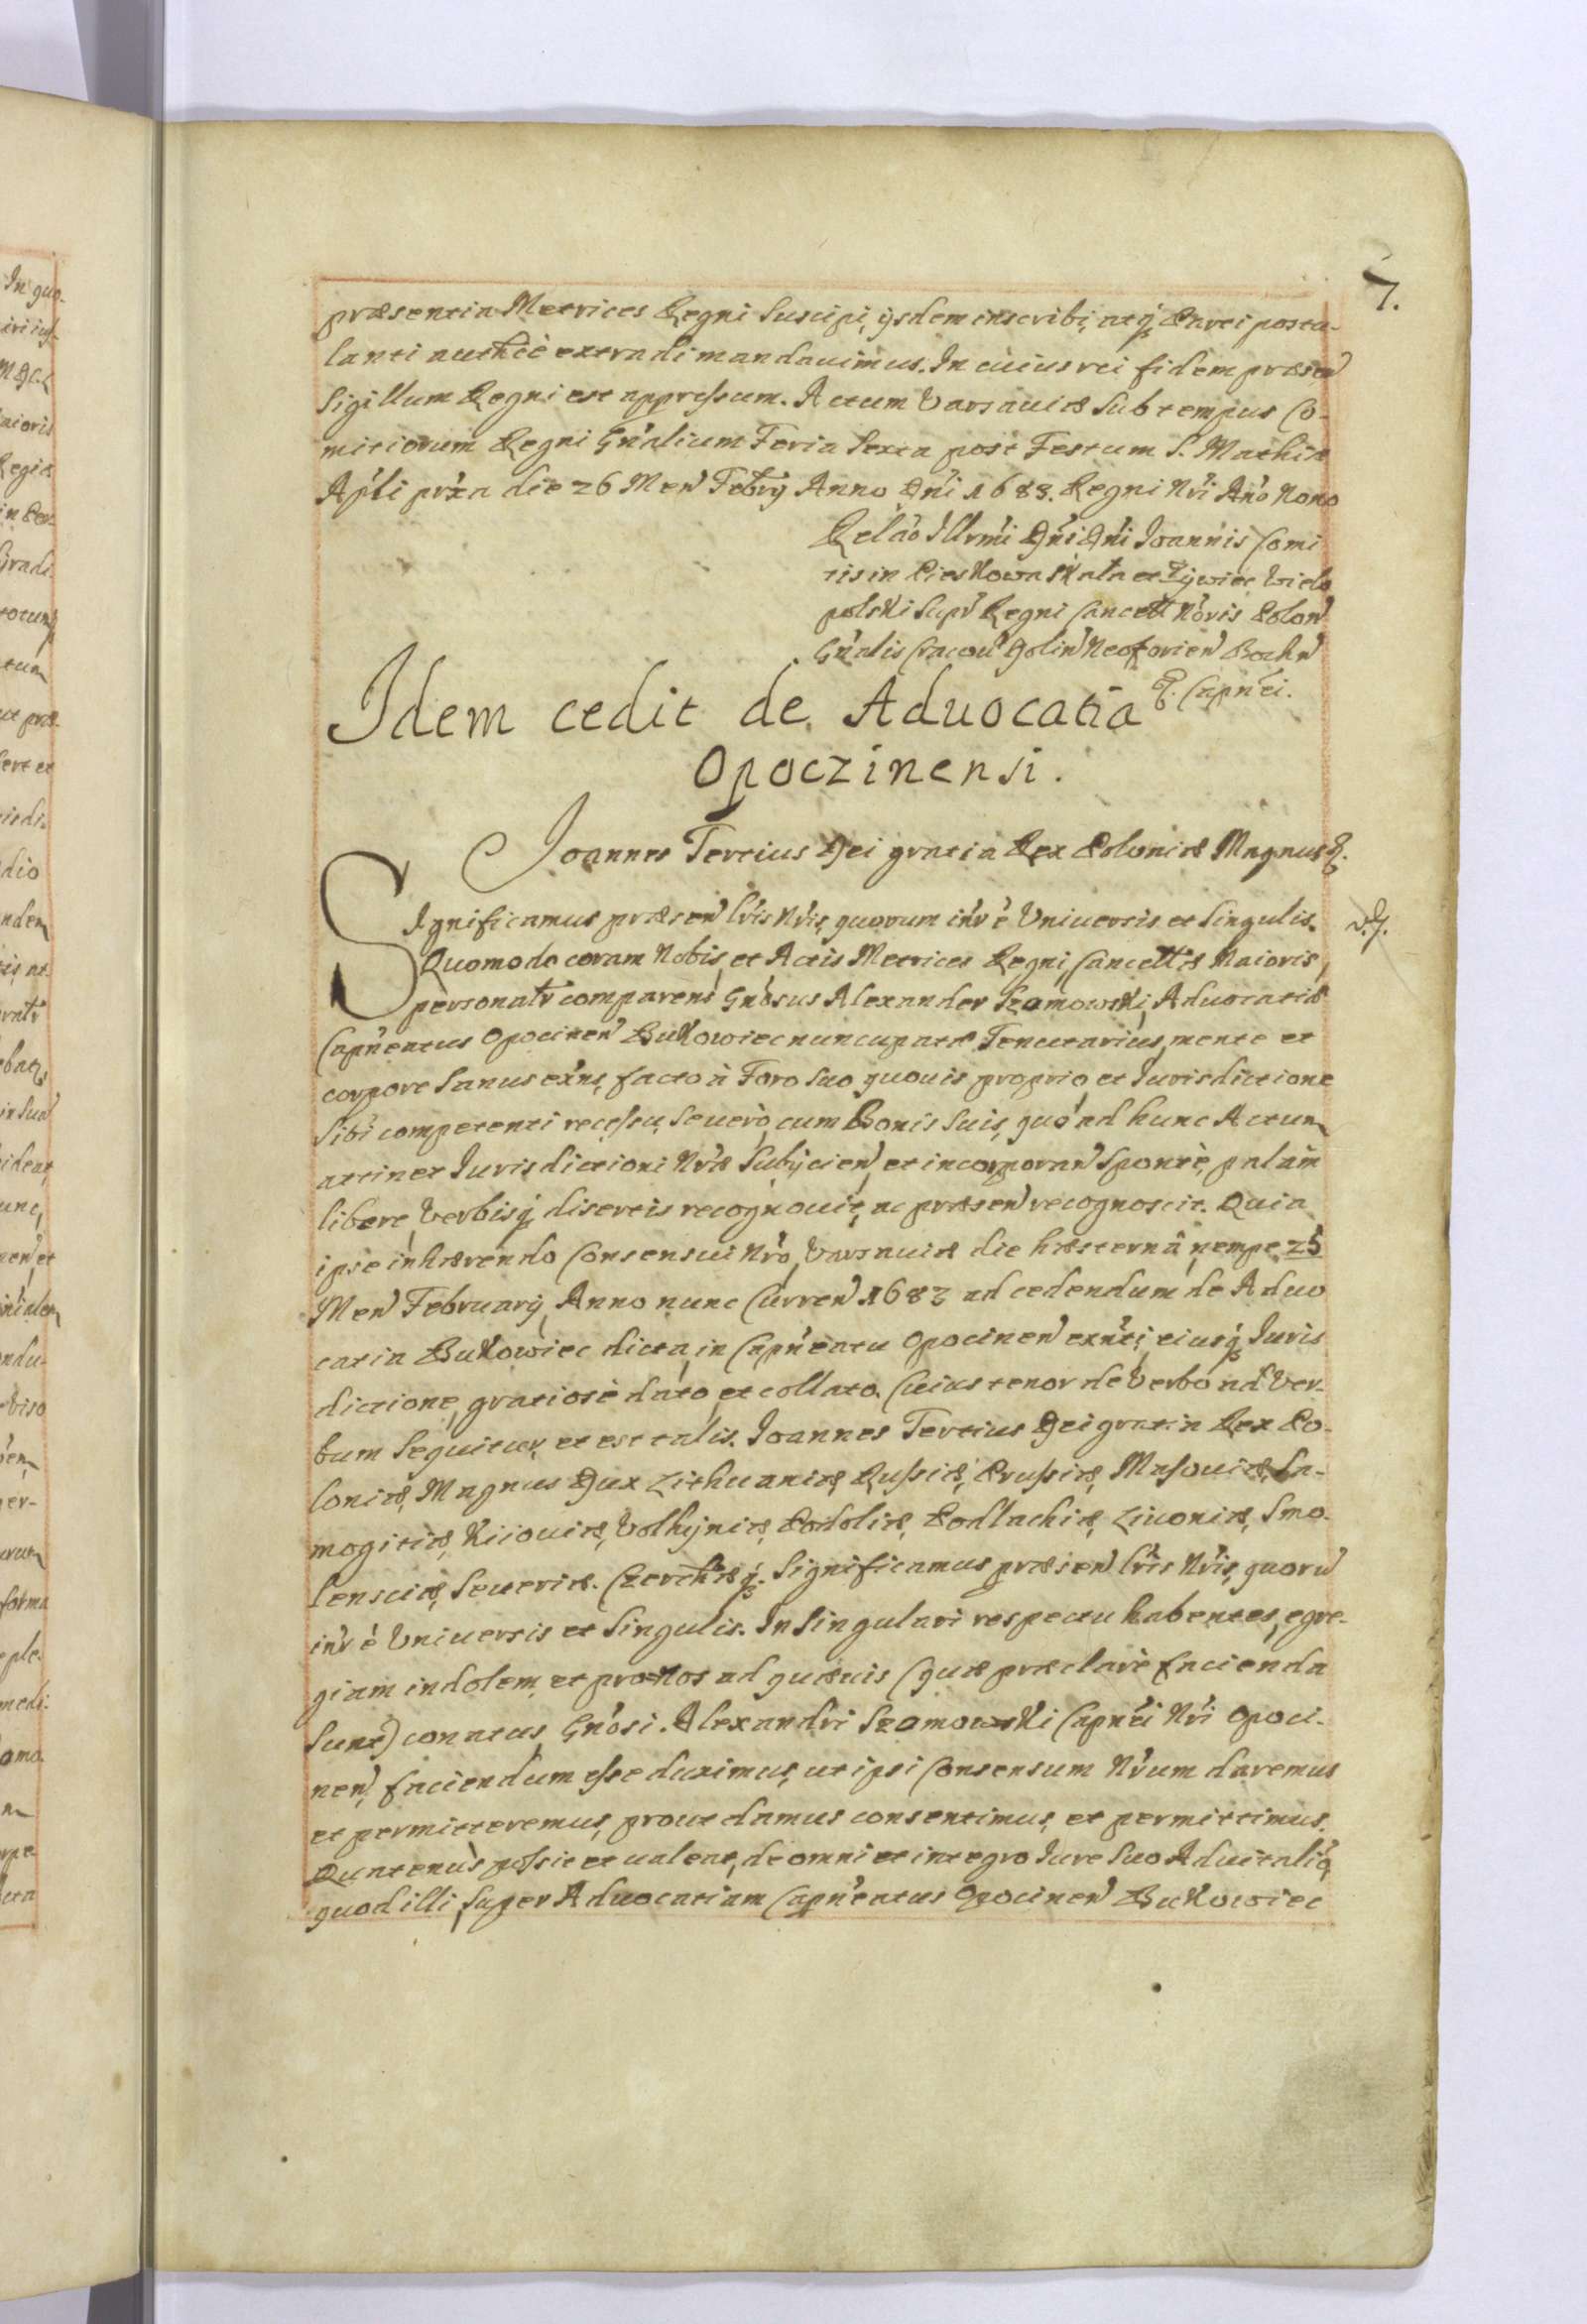 7.
præsentia Metrices Regni suscipi, ijsdem inscribi, atq́ Parti postu-
lanti authcè extradi mandauimus. In cuius rei fidem præsen
Sigillum Regni est appressum. Actum Varsauiæ sub tempus Co-
mitiorum Regni Gn̄alium Feria Sexta post Festum S. Mathiæ
Ap̄li prx̄a die 26 Men Febrij Anno Dn̄i 1683. Regni Nr̄i An̄o Nono
Relāo Illrm̄i Dn̄i Dn̄i Joannis Comi
tis in Pieskowa Skała et Żywiec Wielo
polski Supr̄ Regni Cancell N̄oris Polon
Gn̄alis Cracou Dolin Neoforien Bochn
&. Capn̄ei.
Idem cedit de Aduocatia
Opoczinensi.
Joannes Tertius Dei gratia Rex Poloniæ Magnus &.
Significamus præsen lr̄is Nr̄is, quorum in̄r ē Vniuersis et singulis.
Quomodo coram Nobis, et Actis Metrices Regni, Cancellæ Maioris,
personalr̄ comparens Gn̄osus Alexander Szamowski, Aduocatiæ
Capn̄eatus Opocinen Bukowiec nuncupatæ Tenutarius, mente et
corpore sanus ex̄ns, facto à Foro suo quouis proprio, et Iurisdictione
sibi competenti recessu, seuerò, cum Bonis suis, quo ad hunc Actum
attinet Iurisdictioni Nr̄æ Subijcien, et incorporan Sponte, palàm
libere, Verbisq́ disertis recognouit, ac præsen recognoscit. Quia
ipse inhærendo Consensui Nr̄o, Varsauiæ die hæsternâ, nempe 25
Men February, Anno nunc Curren 1683 ad cedendum de Aduo
catia Bukowiec dicta, in Capn̄eatu Opocinen exn̄ti, eiusq́ Iuris
dictione, gratiosè dato, et collato. Cuius tenor de Verbo ad Ver-
bum sequitur, et est talis. Joannes Tertius Dei gratia Rex Po-
loniæ, Magnus Dux Lithuaniæ, Russiæ, Prussiæ, Masouiæ, Sa-
mogitiæ, Kijouiæ, Volhyniæ, Podoliæ, Podlachiæ, Liuoniæ, Smo-
lensciæ, Seueriæ. Czerchæq́. Significamus præsen lr̄is Nr̄is, quoru
in̄r ē Vniuersis et Singulis. In singulari respectu habentes, egre-
giam indolem, et pronos ad quæuis (quæ præclarè facienda
sunt) conatus, Gn̄osi. Alexandri Szamowski Capn̄ei Nr̄i Opoci-
nen, faciendum esse duximus, ut ipsi Consensum Nr̄um daremus
et permitteremus, prout damus consentimus, et permittimus.
Quatenùs possit et ualeat, de omni et integro Iure suo Aduitalio,
quod illi, super Aduocatiam Capn̄eatus Opocinen Bukowiec